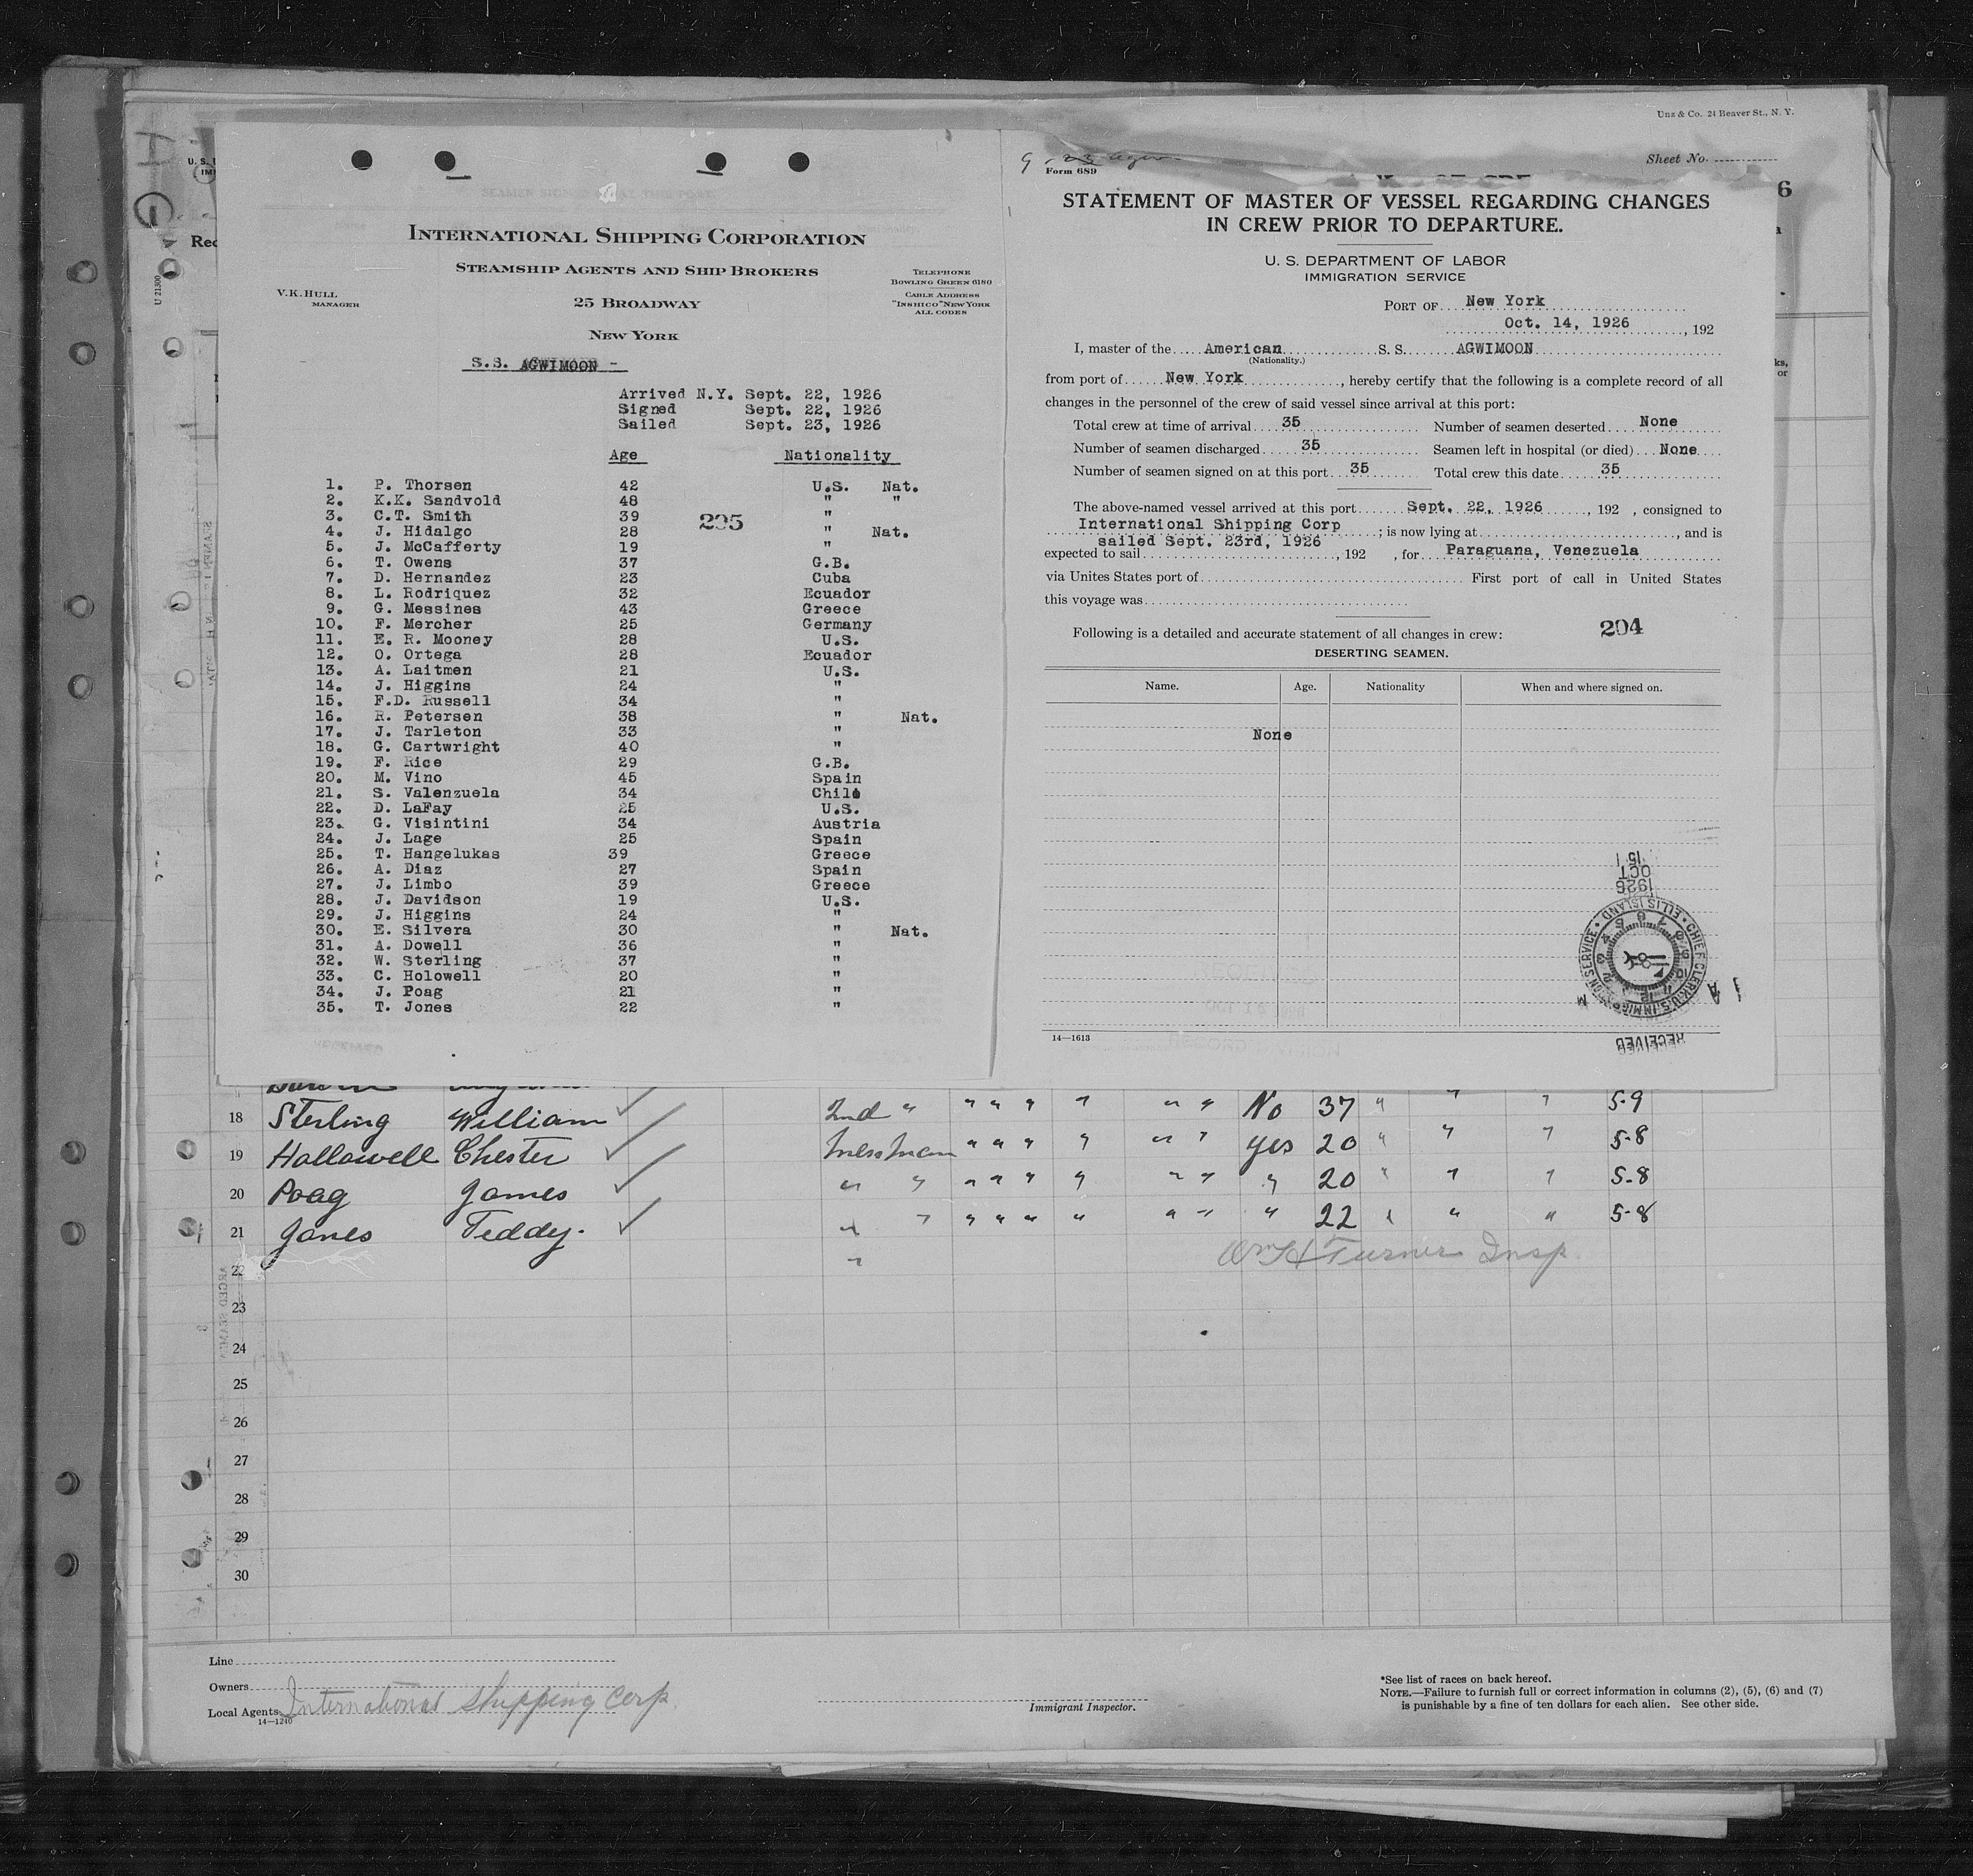 Unz & Co. 24 Beaver St., N. Y.
INTERNATIONAL SHIPPING CORPORATION
STEAMSHIP AGENTS AND SHIP BROKERS
V.K. HULL
MANAGER
25 BROADWAY
NEW YORK
TELEPHONE
BOWLING GREEN 6180
CABLE ADDRESS
"INSHICO" NEW YORK
ALL CODES
S.S. AGWIMOON -
Arrived N.Y. Sept. 22, 1926
Signed Sept. 22, 1926
Sailed Sept. 23, 1926
Age Nationality
1. P. Thorsen 42 U.S. Nat.
2. K.K. Sandvold 48 " "
3. C.T. Smith 39 "
295
4. J. Hidalgo 28 " Nat.
5. J. McCafferty 19 "
6. T. Owens 37 G.B.
7. D. Hernandez 23 Cuba
8. L. Rodriquez 32 Ecuador
9. G. Messines 43 Greece
10. F. Mercher 25 Germany
11. E. R. Mooney 28 U.S.
12. O. Ortega 28 Ecuador
13. A. Laitmen 21 U.S.
14. J. Higgins 24 "
15. F.D. Russell 34 "
16. R. Petersen 38 " Nat.
17. J. Tarleton 33 "
18. G. Cartwright 40 "
19. F. Rice 29 G.B.
20. M. Vino 45 Spain
21. S. Valenzuela 34 Chile
22. D. LaFay 25 U.S.
23. G. Visintini 34 Austria
24. J. Lage 25 Spain
25. T. Hangelukas 39 Greece
26. A. Diaz 27 Spain
27. J. Limbo 39 Greece
28. J. Davidson 19 U.S.
29. J. Higgins 24 "
30. E. Silvera 30 " Nat.
31. A. Dowell 36 "
32. W. Sterling 37 "
33. C. Holowell 20 "
34. J. Poag 21 "
35. T. Jones 22 "
Sheet No.
Form 689
STATEMENT OF MASTER OF VESSEL REGARDING CHANGES
IN CREW PRIOR TO DEPARTURE.
U. S. DEPARTMENT OF LABOR
IMMIGRATION SERVICE
PORT OF New York
Oct. 14, 1926, 192
I, master of the American S. S. AGWIMOON
(Nationality.)
from port of New York, hereby certify that the following is a complete record of all
changes in the personnel of the crew of said vessel since arrival at this port:
Total crew at time of arrival 35 Number of seamen deserted None
Number of seamen discharged 35 Seamen left in hospital (or died) None
Number of seamen signed on at this port 35 Total crew this date 35
The above-named vessel arrived at this port Sept. 22, 1926, 192 , consigned to
International Shipping Corp ; is now lying at , and is
sailed Sept. 23rd, 1926
expected to sail , 192 , for Paraguana, Venezuela
via Unites States port of First port of call in United States
this voyage was
204
Following is a detailed and accurate statement of all changes in crew:
DESERTING SEAMEN.
Name. Age. Nationality When and where signed on.
None
1926
OCT
15
CHIEF CLERK U.S. IMMIGRATION SERVICE ELLIS ISLAND
RECEIVED
14—1613
18 Sterling William 2nd " " " " " " " No 37 " " " 5-9
19 Hallowell Chester Messman " " " " " " Yes 20 " " " 5-8
20 Poag James " " " " " " " " " 20 " " " 5-8
21 Jones Teddy. " " " " " " " " " 22 " " " 5-8
22 " Wm H Turner Insp.
23
24
25
26
27
28
29
30
Line
Owners
Local Agents International Shipping Corp.
14—1240
Immigrant Inspector.
*See list of races on back hereof.
NOTE.—Failure to furnish full or correct information in columns (2), (5), (6) and (7)
is punishable by a fine of ten dollars for each alien. See other side.